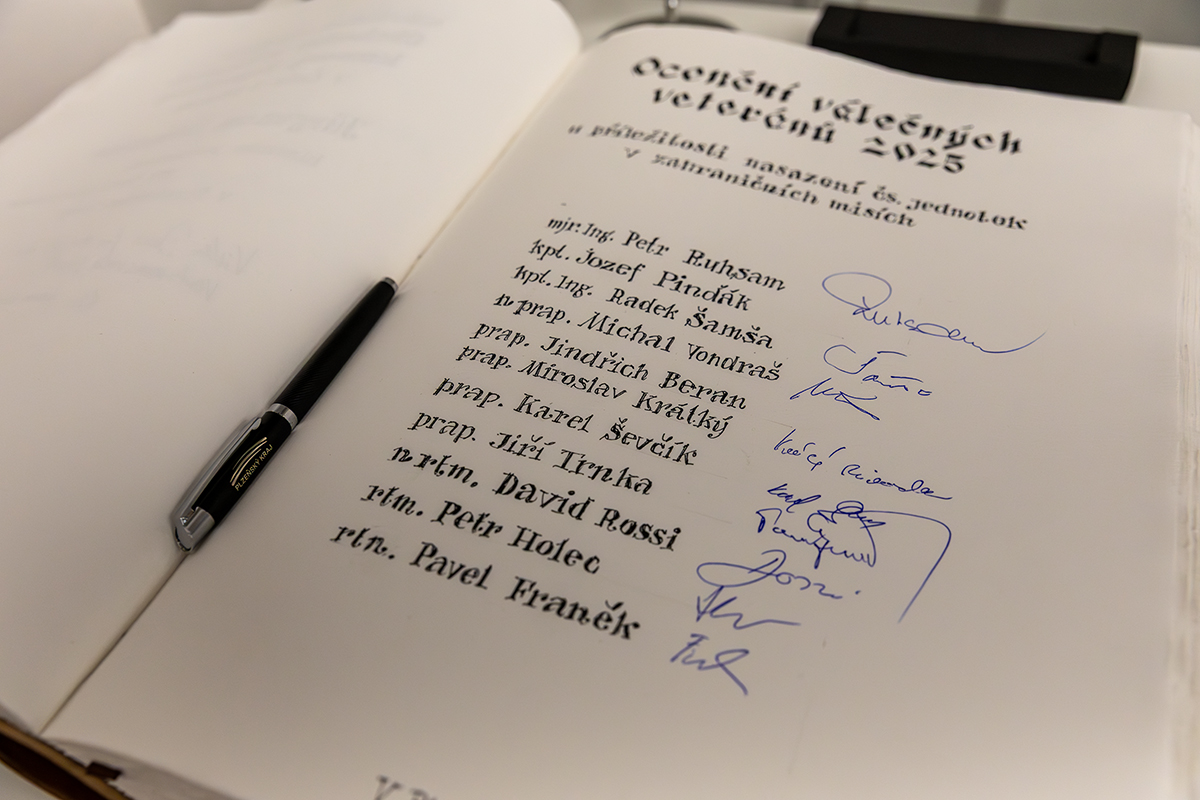 Ocenění válečných
veteránů 2025
u příležitosti nasazení čs. jednotek
v zahraničních misích
mjr. Ing. Petr Ruhsam
kpt. Jozef Pindák
kpt. Ing. Radek Šamša
n prap. Michal Vondraš
prap. Jindřich Beran
prap. Miroslav Krátký
prap. Karel Ševčík
prap. Jiří Trnka
n rtm. David Rossi
rtm. Petr Holec
rtn. Pavel Franěk
PLZEŇSKÝ KRAJ